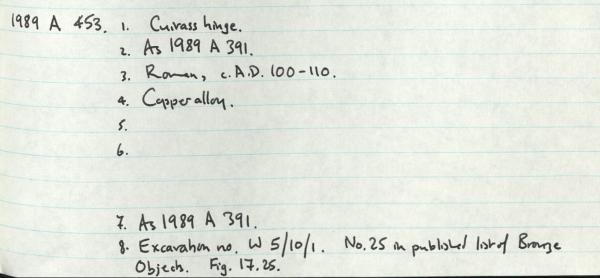 1989 A 453. 1. Cuirass hinge.
2. As 1989 A 391.
3. Roman, c. A.D. 100-110.
4. Copper alloy.
5.
6.
7. As 1989 A 391.
8. Excavation no. W 5/10/1. No. 25 in published list of Bronze
Objects. Fig. 17.25.